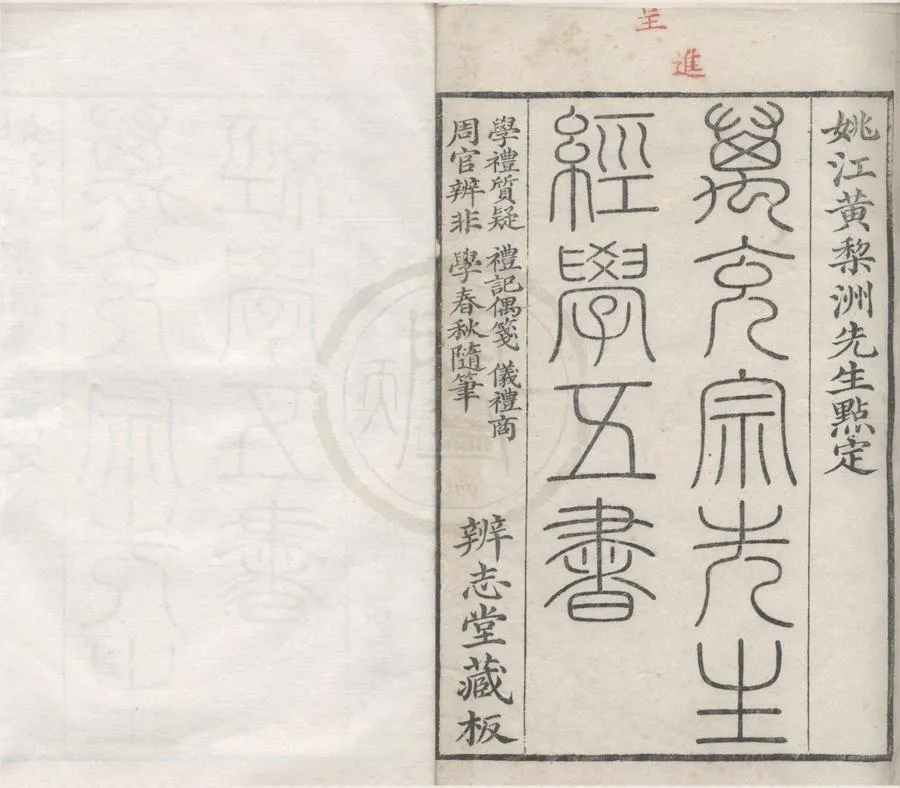 呈進
姚江黄棃洲先生點定
萬充宗先生
經學五書
學禮質疑 禮記偶箋 儀禮商
周官辨非 學春秋隨筆
辨志堂藏板